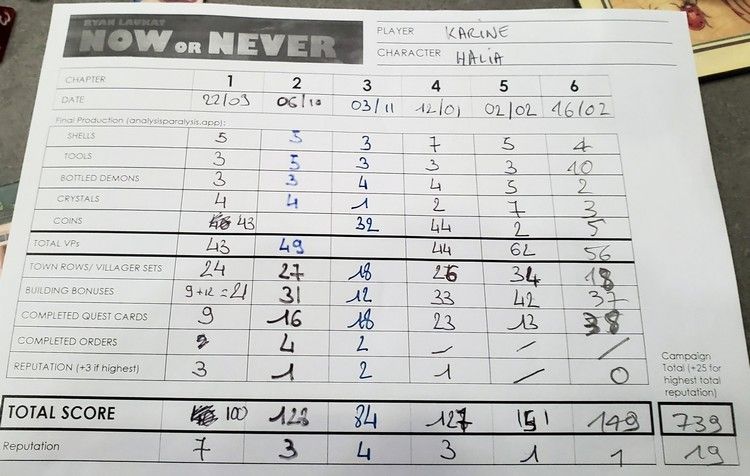 RYAN LAUKAT
NOW OR NEVER
PLAYER KARINE
CHARACTER HALIA
CHAPTER 1 2 3 4 5 6
DATE 22/03 06/10 03/11 12/01 02/02 16/02
Final Production (analysisparalysis.app):
SHELLS 5 5 3 7 5 4
TOOLS 3 5 3 3 3 10
BOTTLED DEMONS 3 3 4 4 5 2
CRYSTALS 4 4 1 2 7 3
COINS 43 32 44 2 5
TOTAL VPs 43 49 44 62 56
TOWN ROWS/ VILLAGER SETS 24 27 18 26 34 18
BUILDING BONUSES 9+12=21 31 12 33 42 37
COMPLETED QUEST CARDS 9 16 18 23 13 38
COMPLETED ORDERS 4 2 / / /
REPUTATION (+3 if highest) 3 1 2 1 / 0
Campaign
Total (+25 for
highest total
reputation)
TOTAL SCORE 100 128 84 127 151 149 739
Reputation 7 3 4 3 1 1 19